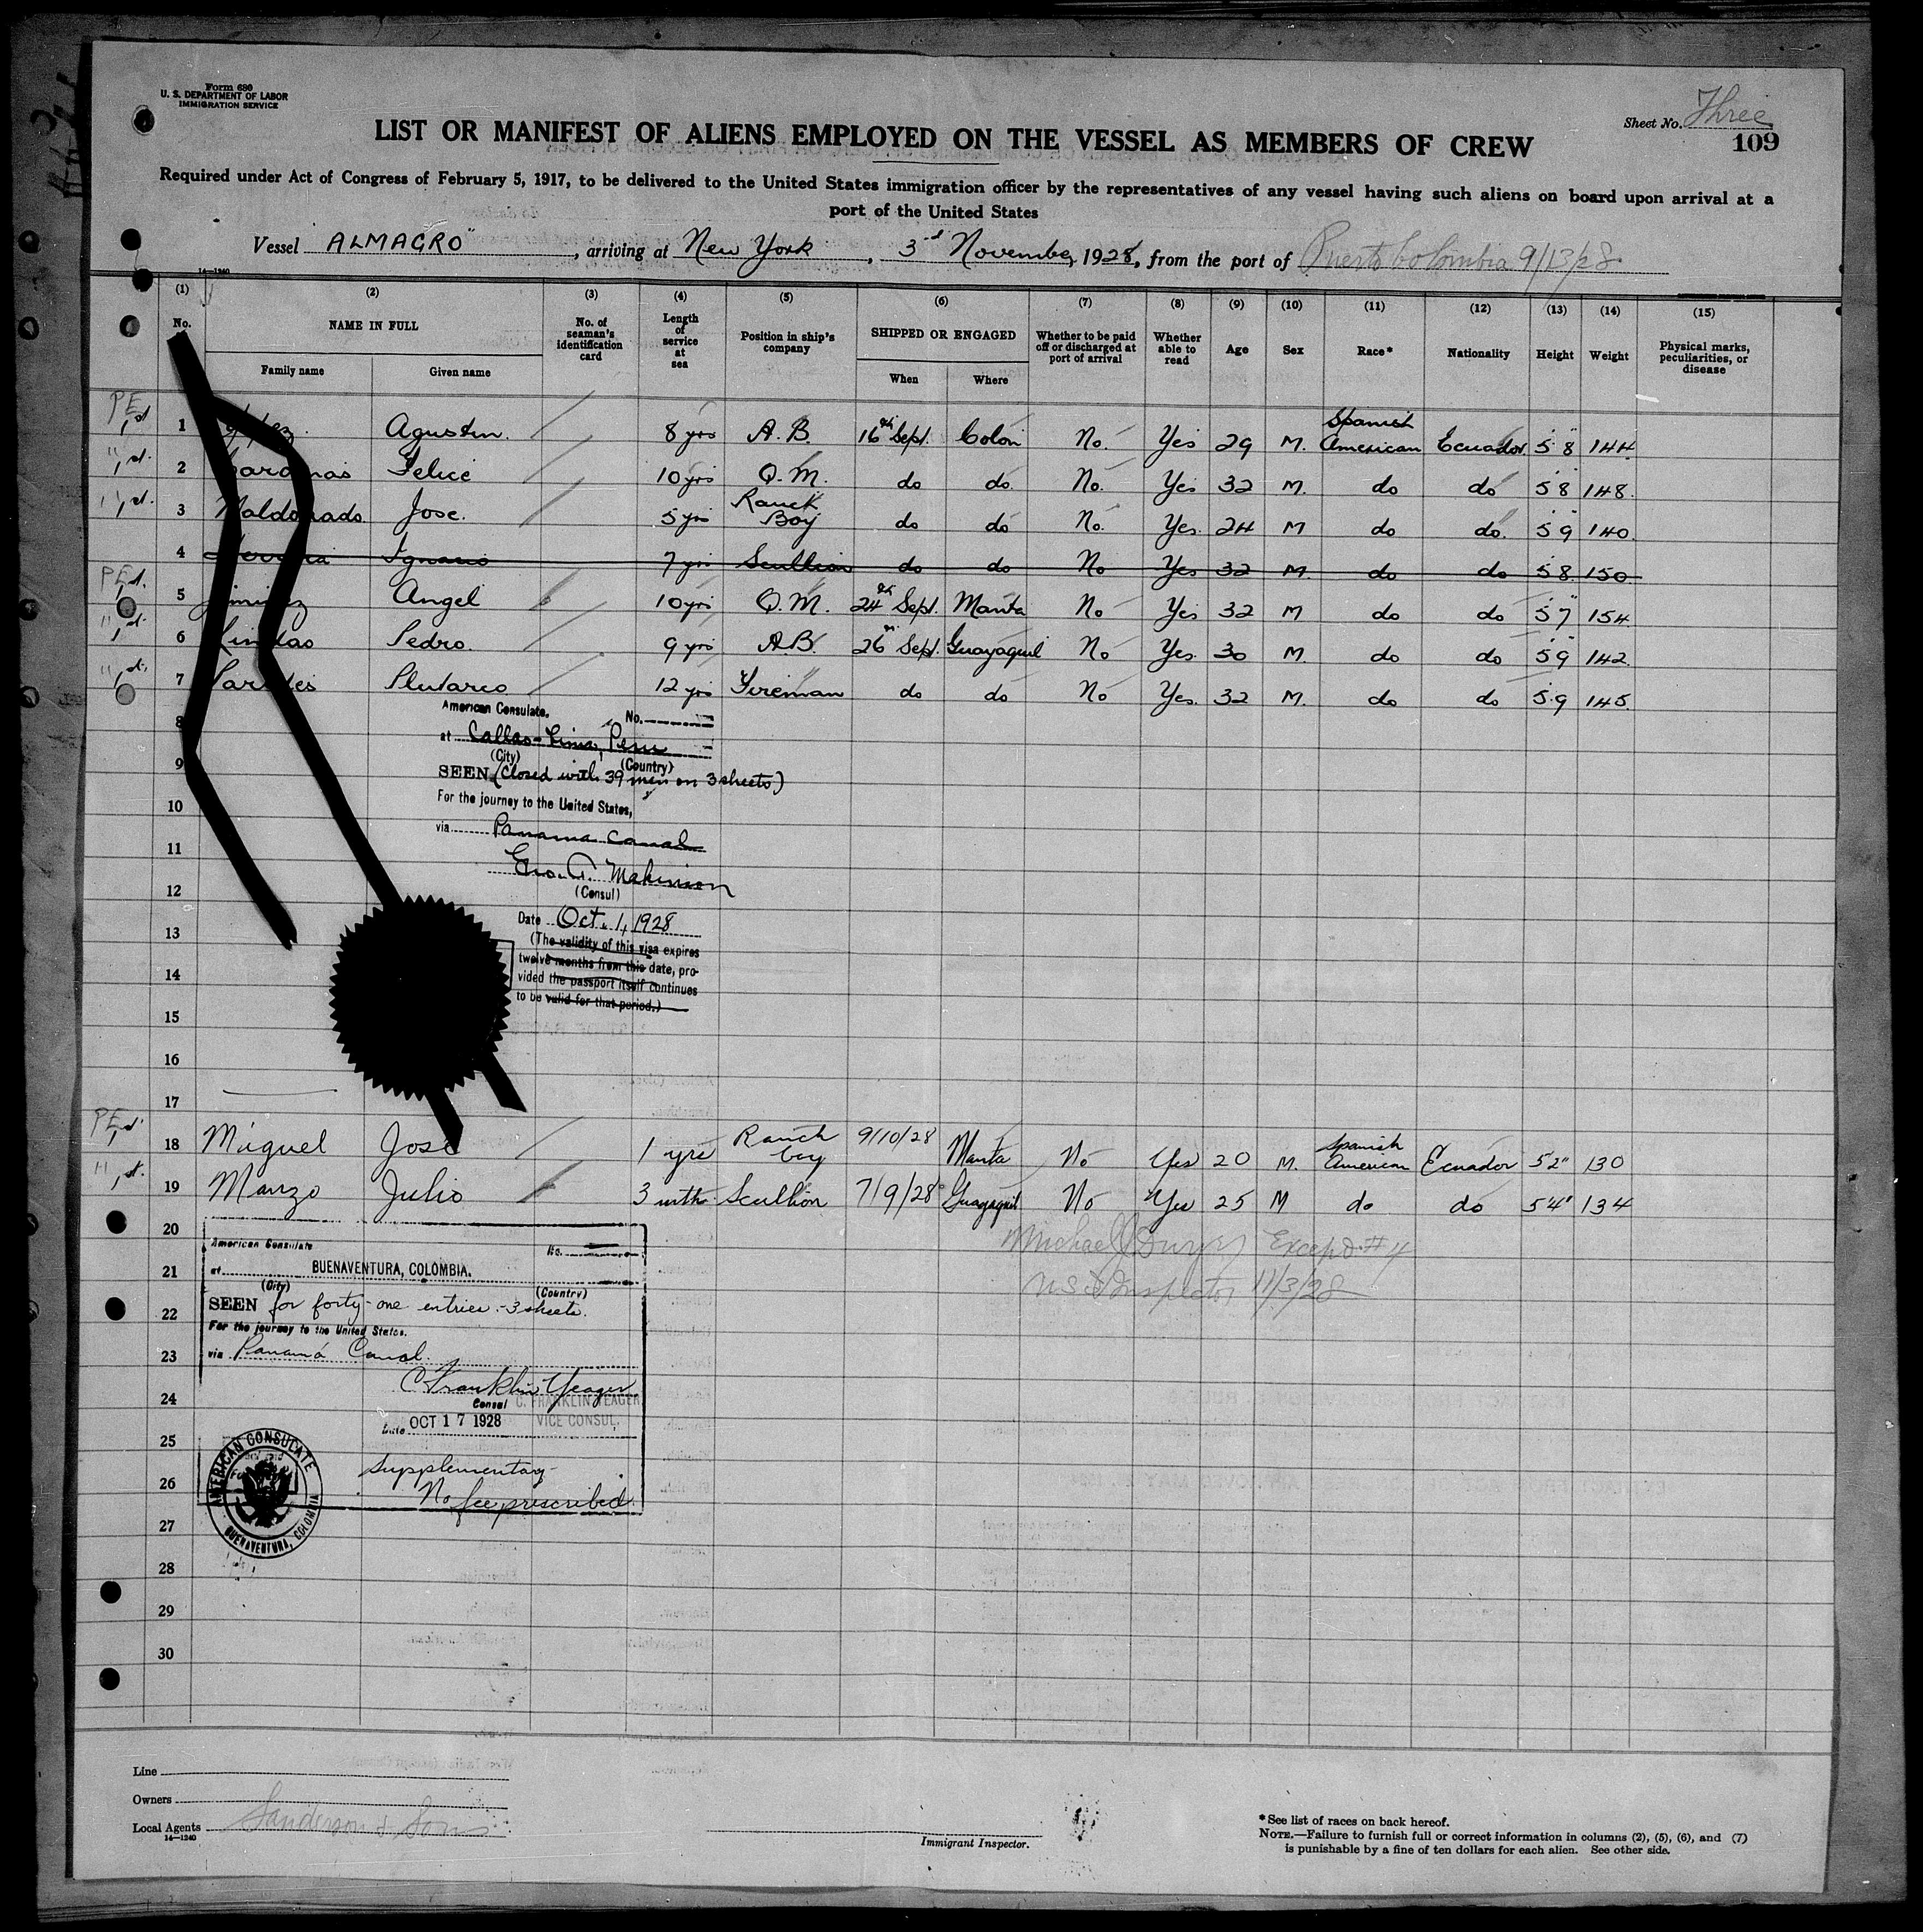 Form 680
U. S. DEPARTMENT OF LABOR
IMMIGRATION SERVICE
Sheet No. Three
109
LIST OR MANIFEST OF ALIENS EMPLOYED ON THE VESSEL AS MEMBERS OF CREW
Required under Act of Congress of February 5, 1917, to be delivered to the United States immigration officer by the representatives of any vessel having such aliens on board upon arrival at a
port of the United States
Vessel "ALMAGRO", arriving at New York, 3rd November, 1928, from the port of Puerto Colombia 9/13/28
14—1240
(1) (2) (3) (4) (5) (6) (7) (8) (9) (10) (11) (12) (13) (14) (15)
No. NAME IN FULL No. of seaman's identification card Length of service at sea Position in ship's company SHIPPED OR ENGAGED Whether to be paid off or discharged at port of arrival Whether able to read Age Sex Race* Nationality Height Weight Physical marks, peculiarities, or disease
Family name Given name When Where
1 Agustin. 8 yrs A.B. 16th Sept. Colon No. Yes 29 M. Spanish American Ecuador. 5 8 144
2 Felice 10 yrs Q.M. do do. No. Yes 32 M. do do 5 8 148.
3 Maldonado. Jose. 5 yrs Ranch Boy do do No. Yes. 24 M do do. 5 9 140.
4 Ignacio 7 yrs Scullion do do No Yes 32 M. do do 5 8. 150
5 Angel 10 yrs Q.M. 24th Sept. Manta No Yes 32 M do do 5 7 154
6 Pedro. 9 yrs A.B. 26th Sept. Guayaquil No Yes. 30 M. do do 5 9 142
7 Plutarco 12 yrs Fireman do do No Yes. 32 M. do do 5.9 145.
8
American Consulate. No.
at Callao-Lima, Peru
(City) (Country)
9
SEEN (Closed with 39 men on 3 sheets)
10
For the journey to the United States,
via Panama Canal
11
Geo. A. Makinson
(Consul)
12
Date Oct. 1, 1928
13
(The validity of this visa expires
twelve months from this date, pro-
14
vided the passport itself continues
to be valid for that period.)
15
16
17
18 Miguel José 1 yrs Ranch boy 9/10/28 Manta No Yes 20 M. Spanish American Ecuador 5 2" 130
19 Manzo Julio 3 mths Scullion 7/9/28 Guayaquil No Yes 25 M do do 5 4" 134
20
Michael J Dwyer Except #4
American Consulate No.
21
at BUENAVENTURA, COLOMBIA.
(City) (Country)
11/3/28
22
SEEN for forty-one entries - 3 sheets.
For the journey to the United States.
23
via Panamá Canal.
C Franklin Yeager
24
Consul C. FRANKLIN YEAGER
Date OCT 17 1928 VICE CONSUL.
25
AMERICAN CONSULATE
BUENAVENTURA, COLOMBIA
26
Supplementary-
No fee prescribed.
27
28
29
30
Line
Owners
Local Agents Sanderson & Sons
14—1240
Immigrant Inspector.
*See list of races on back hereof.
NOTE.—Failure to furnish full or correct information in columns (2), (5), (6), and (7)
is punishable by a fine of ten dollars for each alien. See other side.